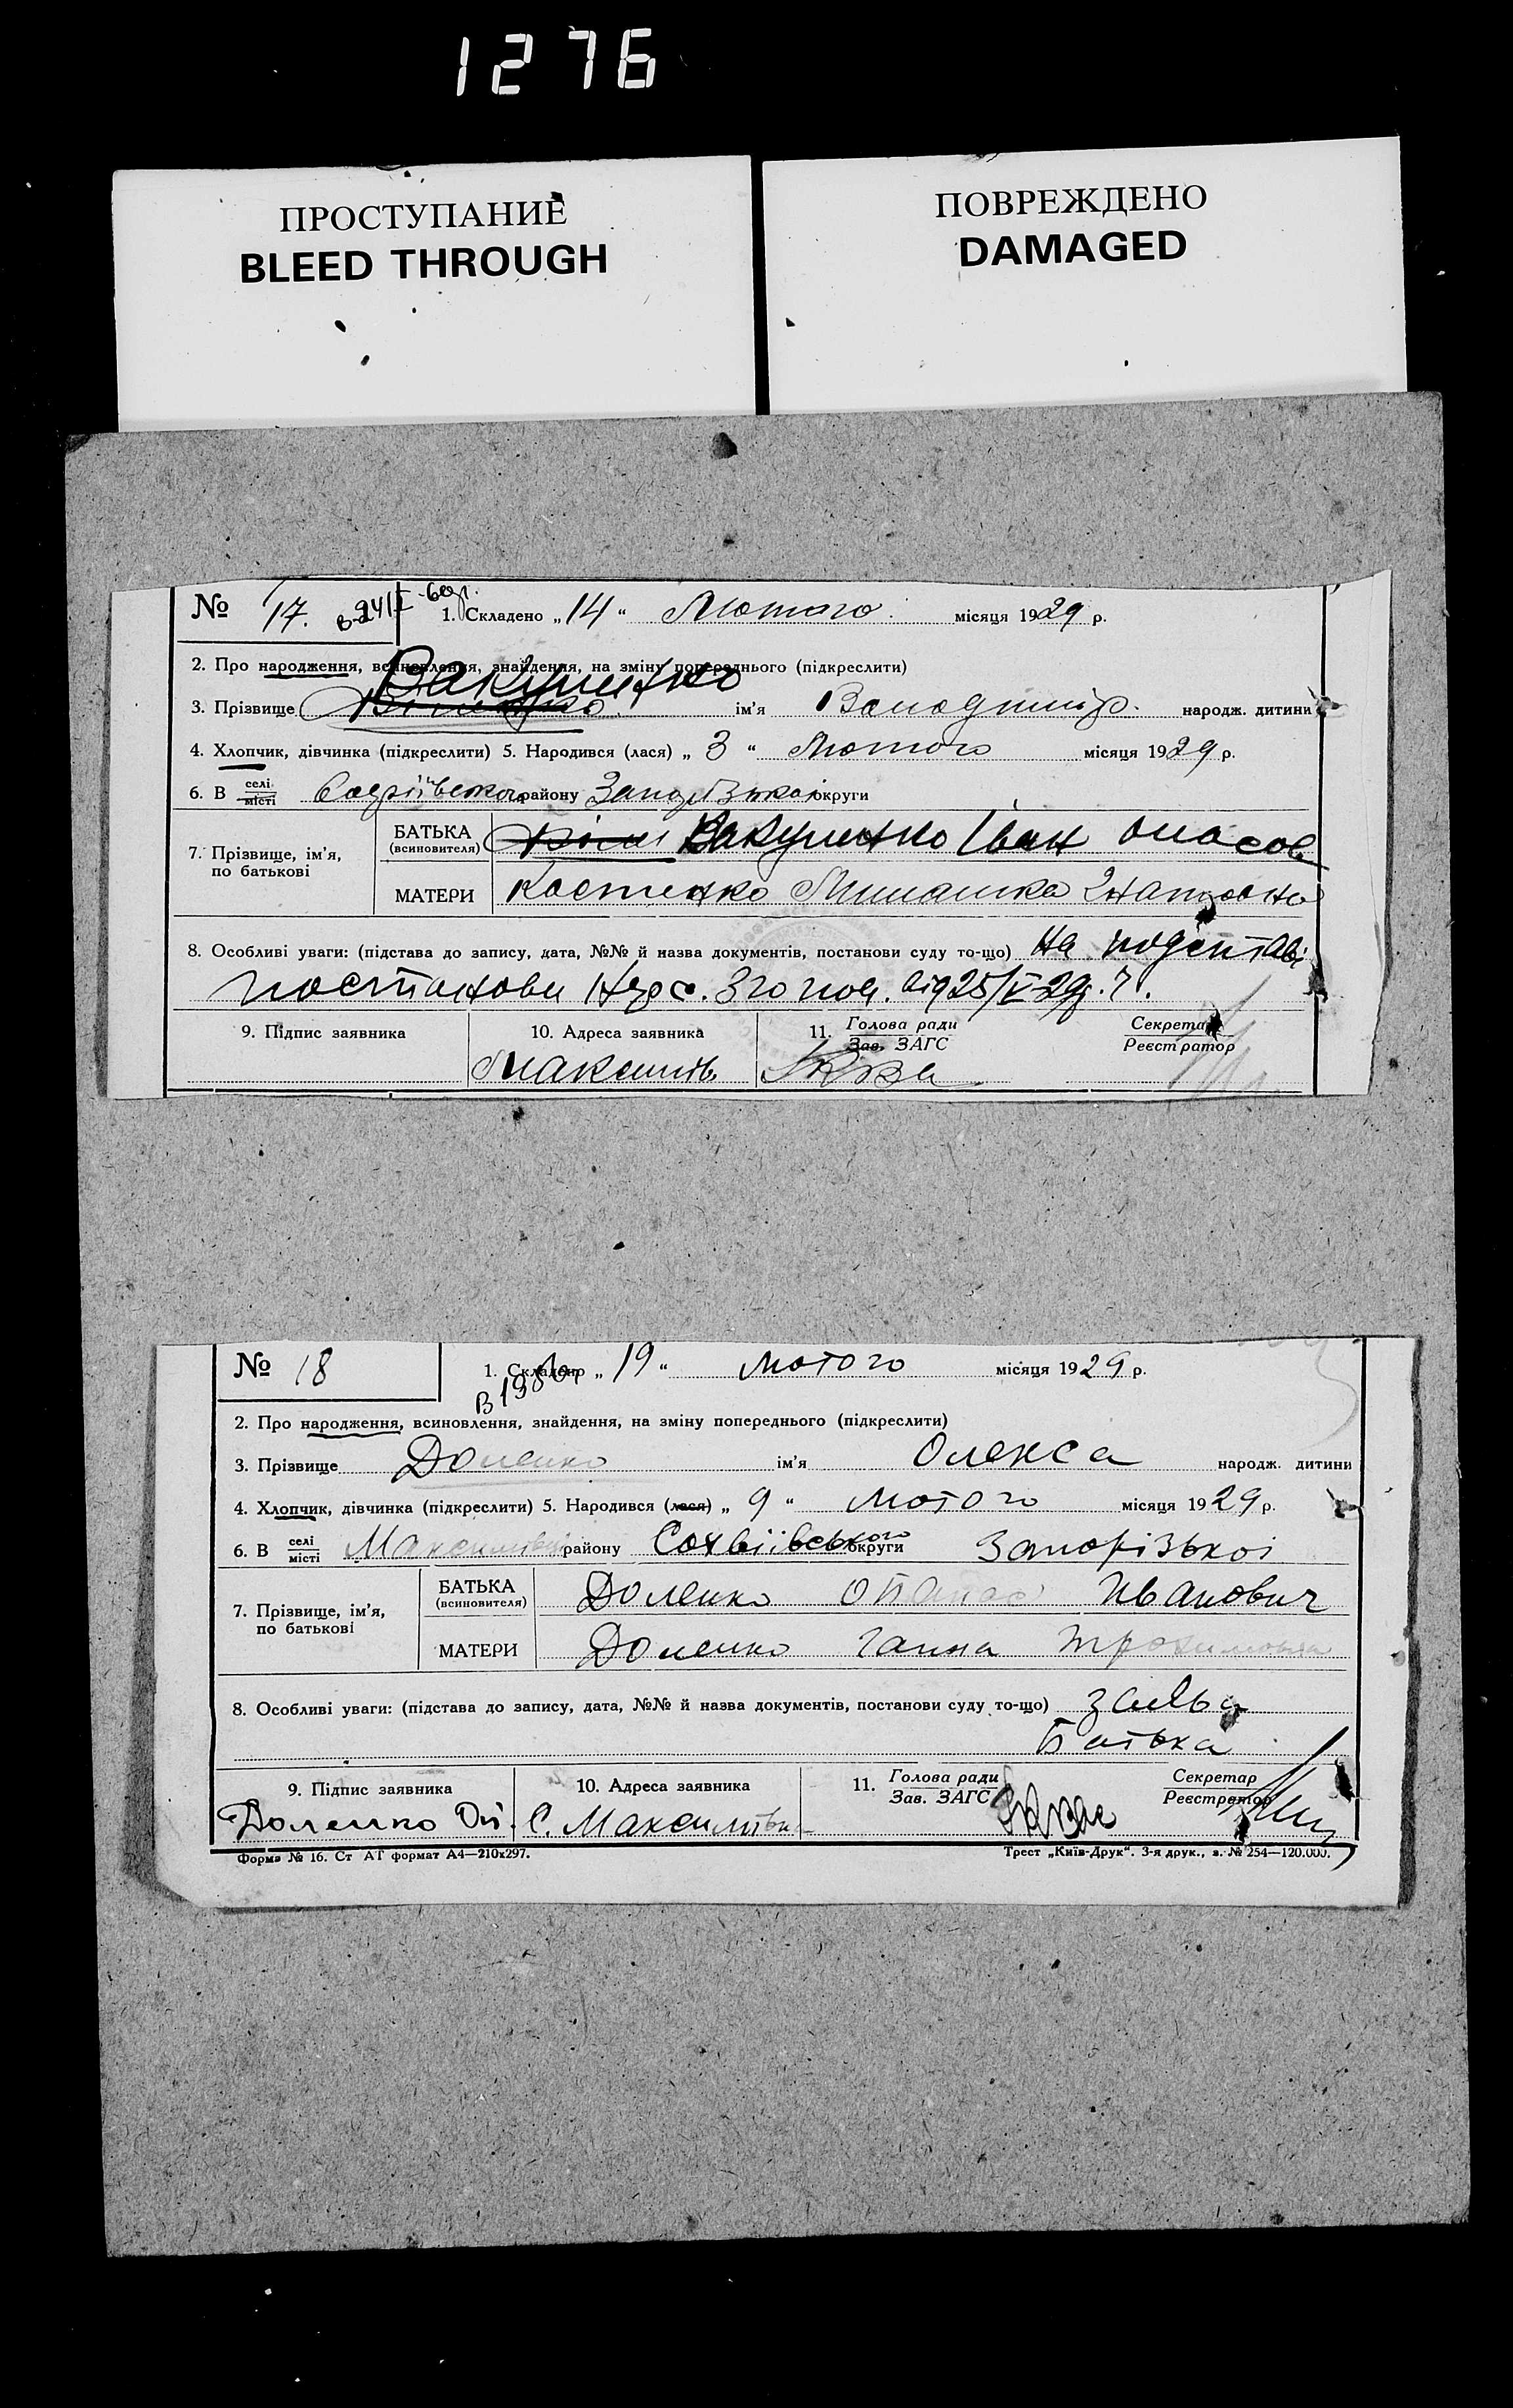 1276
ПРОСТУПАНИЕ
BLEED THROUGH
ПОВРЕЖДЕНО
DAMAGED
№ 17. 1. Складено „14“ Лютого місяця 1929 р.
2. Про народження, всиновлення, знайдення, на зміну попереднього (підкреслити)
Вакуленко
3. Прізвище ім'я Володимір народж. дитини
4. Хлопчик, дівчинка (підкреслити) 5. Народився (лася) „ 3 “ Лютого місяця 1929 р.
6. В селі місті району округи
7. Прізвище, ім'я, по батькові
БАТЬКА (всиновителя) Вакуленко Іван
МАТЕРИ Костенко
8. Особливі уваги: (підстава до запису, дата, №№ й назва документів, постанови суду то-що) на підставі
постанови Нарс. від 25/V-29 р.
9. Підпис заявника 10. Адреса заявника 11. Голова ради Зав. ЗАГС Секретар Реєстратор
№ 18 1. Складено „ 19 “ Лютого місяця 1929 р.
2. Про народження, всиновлення, знайдення, на зміну попереднього (підкреслити)
3. Прізвище Доленко ім'я Олекса народж. дитини
4. Хлопчик, дівчинка (підкреслити) 5. Народився (лася) „ 9 “ Лютого місяця 1929 р.
6. В селі місті Максимівці району Софіівського округи Запорізькоі
7. Прізвище, ім'я, по батькові
БАТЬКА (всиновителя) Доленко Опанас Иванович
МАТЕРИ Доленко Ганна Трохимовна
8. Особливі уваги: (підстава до запису, дата, №№ й назва документів, постанови суду то-що) заява
Батька
9. Підпис заявника 10. Адреса заявника 11. Голова ради Зав. ЗАГС Секретар Реєстратор
Доленко Оп. С. Максимівка
Форма № 16. Ст АГ формат А4—210х297. Трест „Київ-Друк“. 3-я друк., з. № 254—120.000.